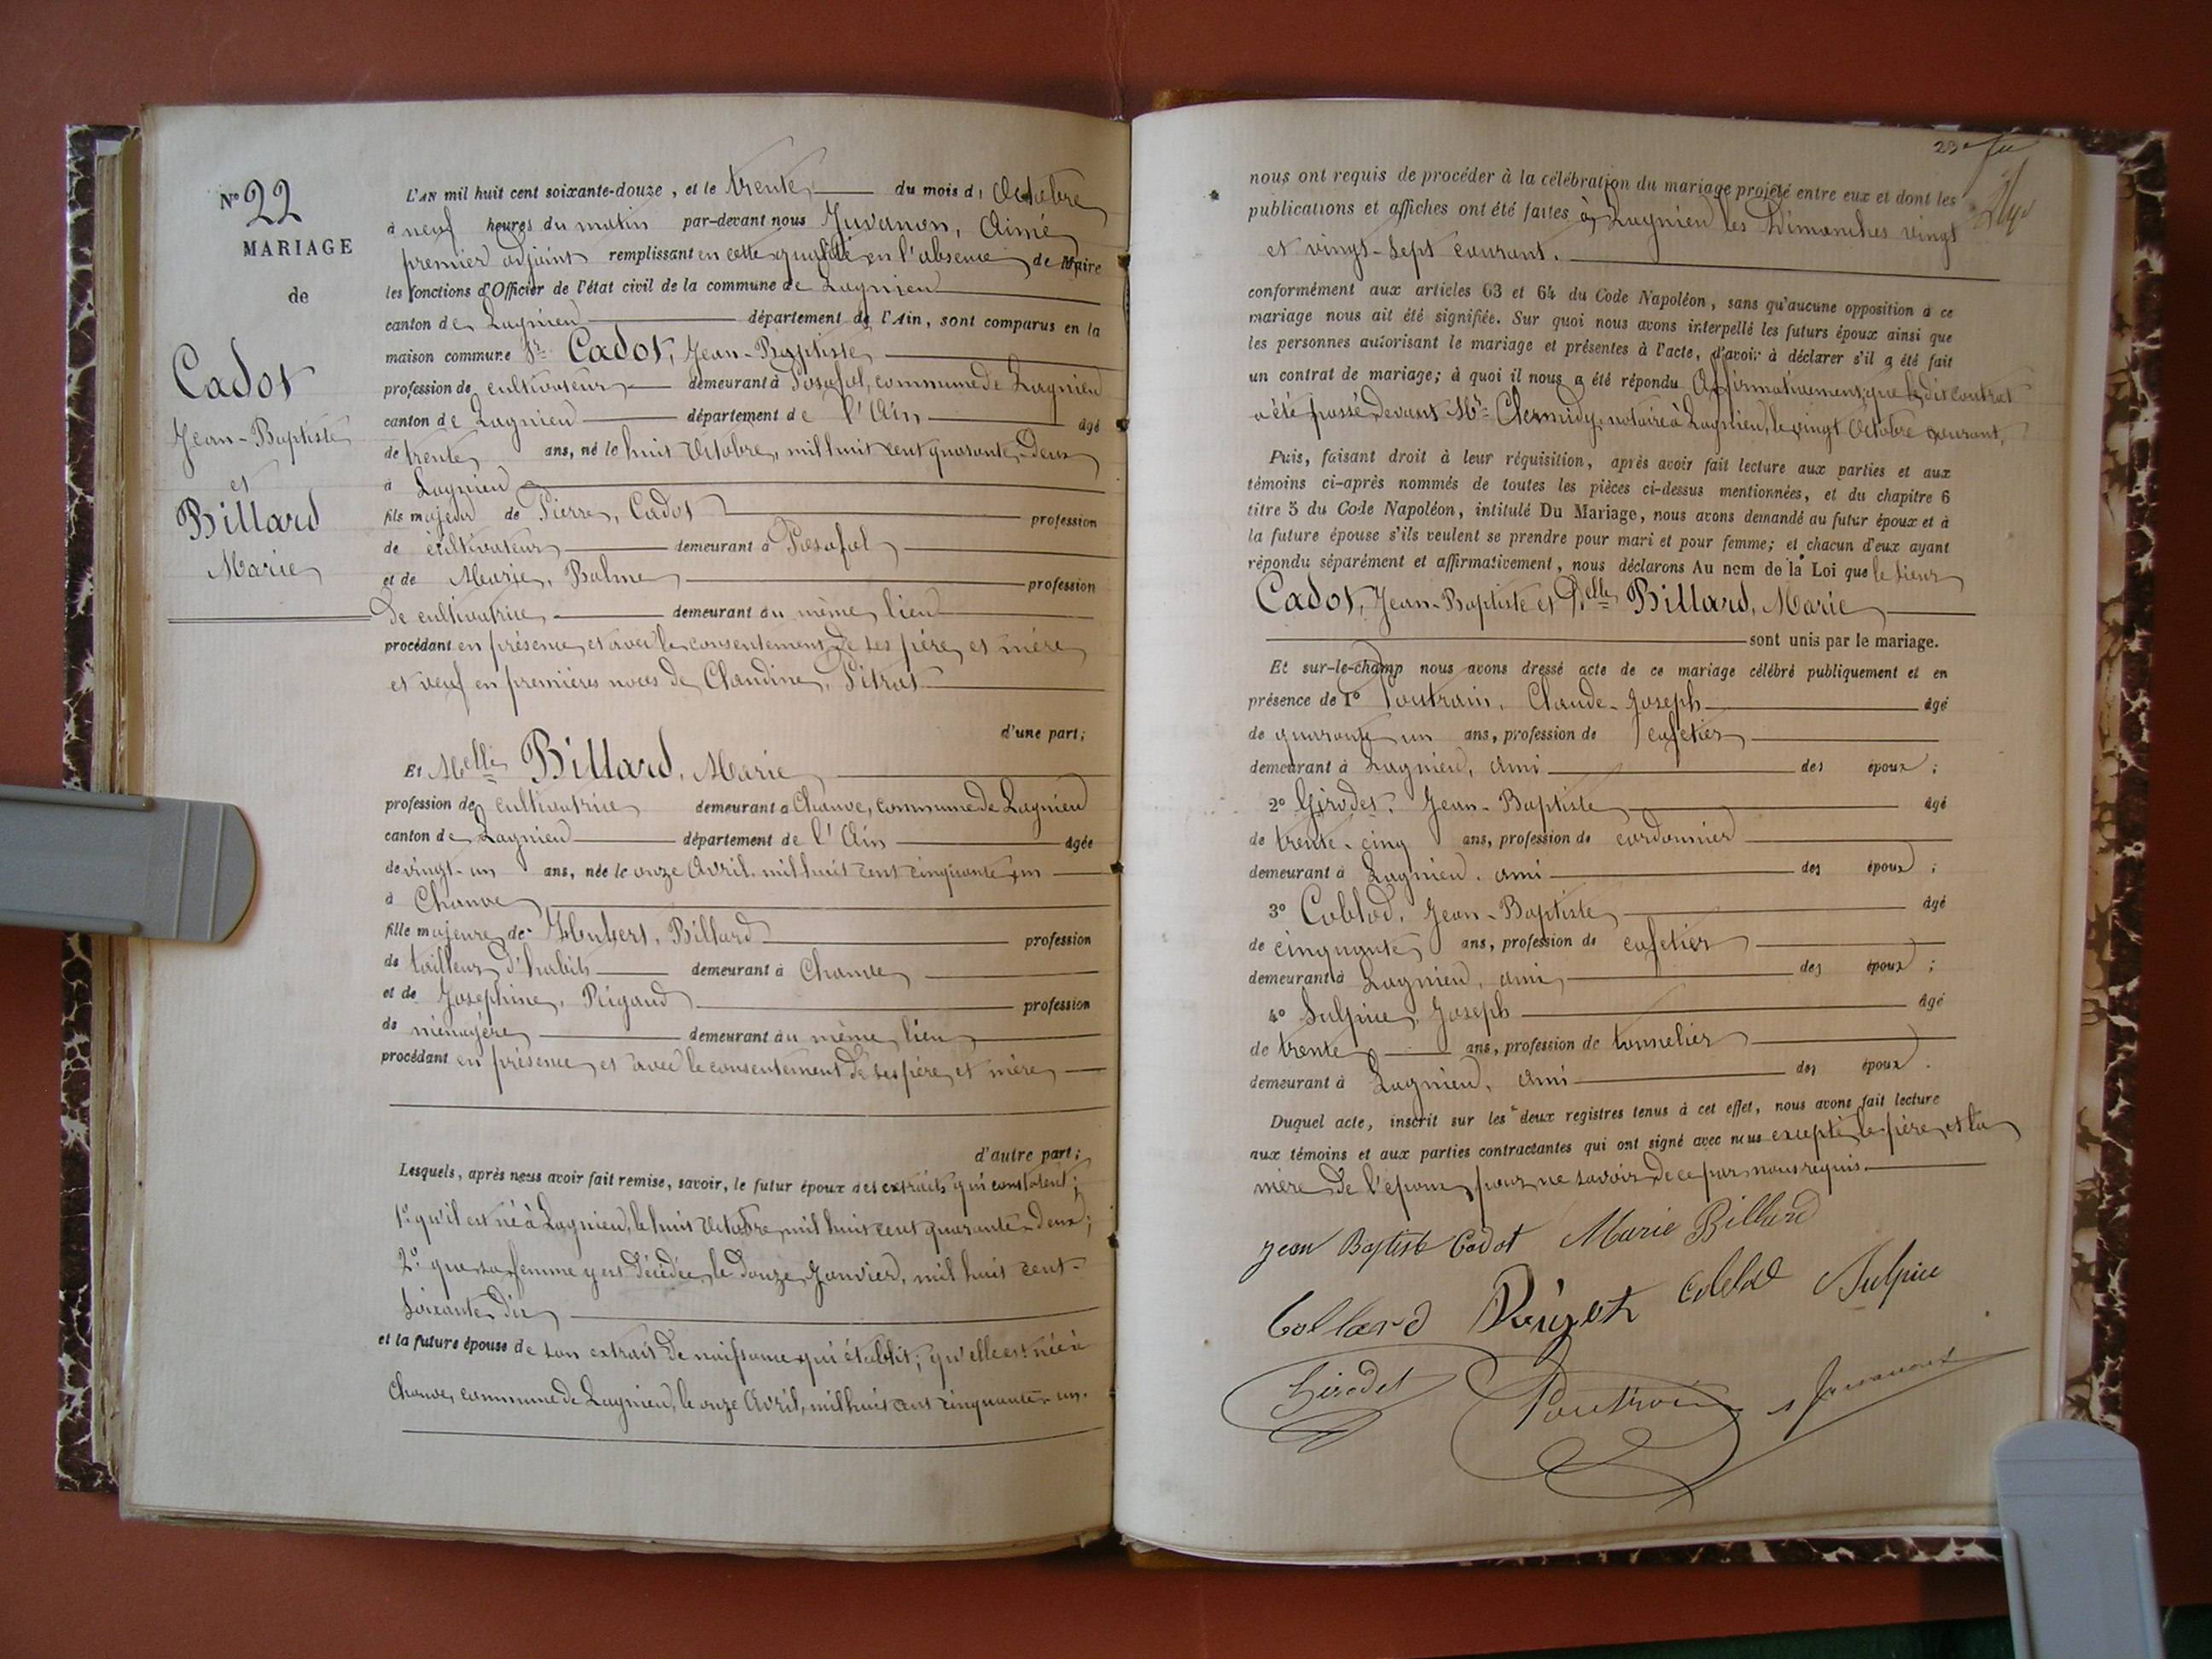 N° 22
MARIAGE
de
Cadot
Jean-Baptiste
et
Billard
Marie
L'AN mil huit cent soixante-douze, et le trente du mois d'Octobre
à neuf heures du matin par-devant nous Juvanon, Aimé
premier adjoint remplissant en cette qualité en l'absence de Maire
les fonctions d'Officier de l'état civil de la commune de Lagnieu
canton de Lagnieu département de l'Ain, sont comparus en la
maison commune Sr Cadot, Jean-Baptiste
profession de cultivateur demeurant à Posafol, commune de Lagnieu
canton de Lagnieu département de l'Ain âgé
de trente ans, né le huit Octobre, mil huit cent quarante-deux
à Lagnieu
fils majeur de Pierre, Cadot profession
de cultivateur demeurant à Posafol
et de Marie, Balme profession
de cultivatrice demeurant au même lieu
procédant en présence et avec le consentement de ses père et mère
et veuf en premières noces de Claudine, Pitrat
d'une part;
Et Melle Billard, Marie
profession de cultivatrice demeurant à Chanve, commune de Lagnieu
canton de Lagnieu département de l'Ain âgée
de vingt-un ans, née le onze Avril, mil huit cent cinquante-un
à Chanve
fille majeure de Humbert, Billard profession
de tailleur d'habits demeurant à Chanve
et de Josephine, Rigaud profession
de ménagère demeurant au même lieu
procédant en présence et avec le consentement de ses père et mère
d'autre part;
Lesquels, après nous avoir fait remise, savoir, le futur époux des extraits qui constatent;
1° qu'il est né à Lagnieu, le huit Octobre, mil huit cent quarante-deux;
2° que sa femme y est décédée, le douze Janvier, mil huit cent-
soixante dix
et la future épouse de son extrait de naissance qui établit; qu'elle est née à
Chanve, commune de Lagnieu, le onze Avril, mil huit cent cinquante-un.
23e
nous ont requis de procéder à la célébration du mariage projeté entre eux et dont les
publications et affiches ont été faites à Lagnieu les Dimanches vingt
et vingt-sept courant.
conformément aux articles 63 et 64 du Code Napoléon, sans qu'aucune opposition à ce
mariage nous ait été signifiée. Sur quoi nous avons interpellé les futurs époux ainsi que
les personnes autorisant le mariage et présentes à l'acte, d'avoir à déclarer s'il a été fait
un contrat de mariage; à quoi il nous a été répondu Affirmativement, que le dit contrat
a été passé devant Mr Clermidy, notaire à Lagnieu, le vingt Octobre courant,
Puis, faisant droit à leur réquisition, après avoir fait lecture aux parties et aux
témoins ci-après nommés de toutes les pièces ci-dessus mentionnées, et du chapitre 6
titre 5 du Code Napoléon, intitulé Du Mariage, nous avons demandé au futur époux et à
la future épouse s'ils veulent se prendre pour mari et pour femme; et chacun d'eux ayant
répondu séparément et affirmativement, nous déclarons Au nom de la Loi que le Sieur
Cadot, Jean-Baptiste et Delle Billard, Marie
sont unis par le mariage.
Et sur-le-champ nous avons dressé acte de ce mariage célébré publiquement et en
présence de 1° Poutrain, Claude-Joseph âgé
de quarante-un ans, profession de cafetier
demeurant à Lagnieu, ami des époux;
2° Girodet, Jean-Baptiste âgé
de trente-cinq ans, profession de cordonnier
demeurant à Lagnieu, ami des époux;
3° Coblod, Jean-Baptiste âgé
de cinquante ans, profession de cafetier
demeurant à Lagnieu, ami des époux;
4° Sulpice, Joseph âgé
de trente ans, profession de tonnelier
demeurant à Lagnieu, ami des époux.
Duquel acte, inscrit sur les deux registres tenus à cet effet, nous avons fait lecture
aux témoins et aux parties contractantes qui ont signé avec nous excepté le père et la
mère de l'époux pour ne savoir de ce par nous requis.
Jean Baptiste Cadot Marie Billard
Coblod Sulpice
Girodet Poutrain Juvanon